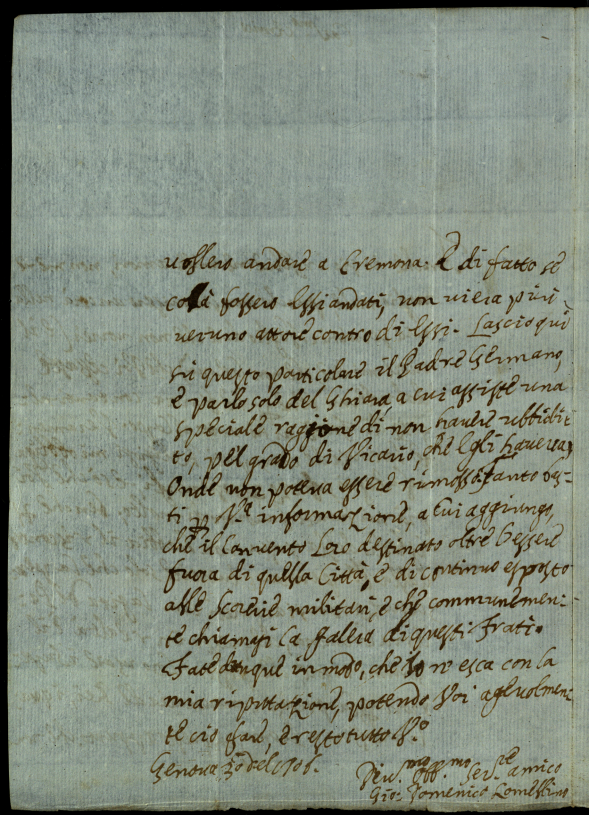 volsero andare a Cremona. E di fatto se
colà fossero essi andati, non viera più
veruno attore contro di Essi. Lascio qui
su questo particolare il Padre Germano,
e parlo solo del Ghiara, a cui assiste una
speciale raggione di non havere ubbidi-
to, pel grado di Vicario, che Egli haveva,
Onde non poteva essere rimosso. Tanto
ti p informazione, a cui aggiungo,
che il Convento loro destinato oltre l'essere
fuora di quella Città, è di continuo esposto
alle Scorerie militari, e che communemen-
te chiamasi la Galera di questi Frati.
Fate dunque in modo, che Io n'esca con la
mia riputazione, potendo Voi agevolmen-
te ciò fare, e resto tutto Vo
Genova 30 del 1706.
Devmo Obbmo Serre amico
Gio: Domenico Lomellino